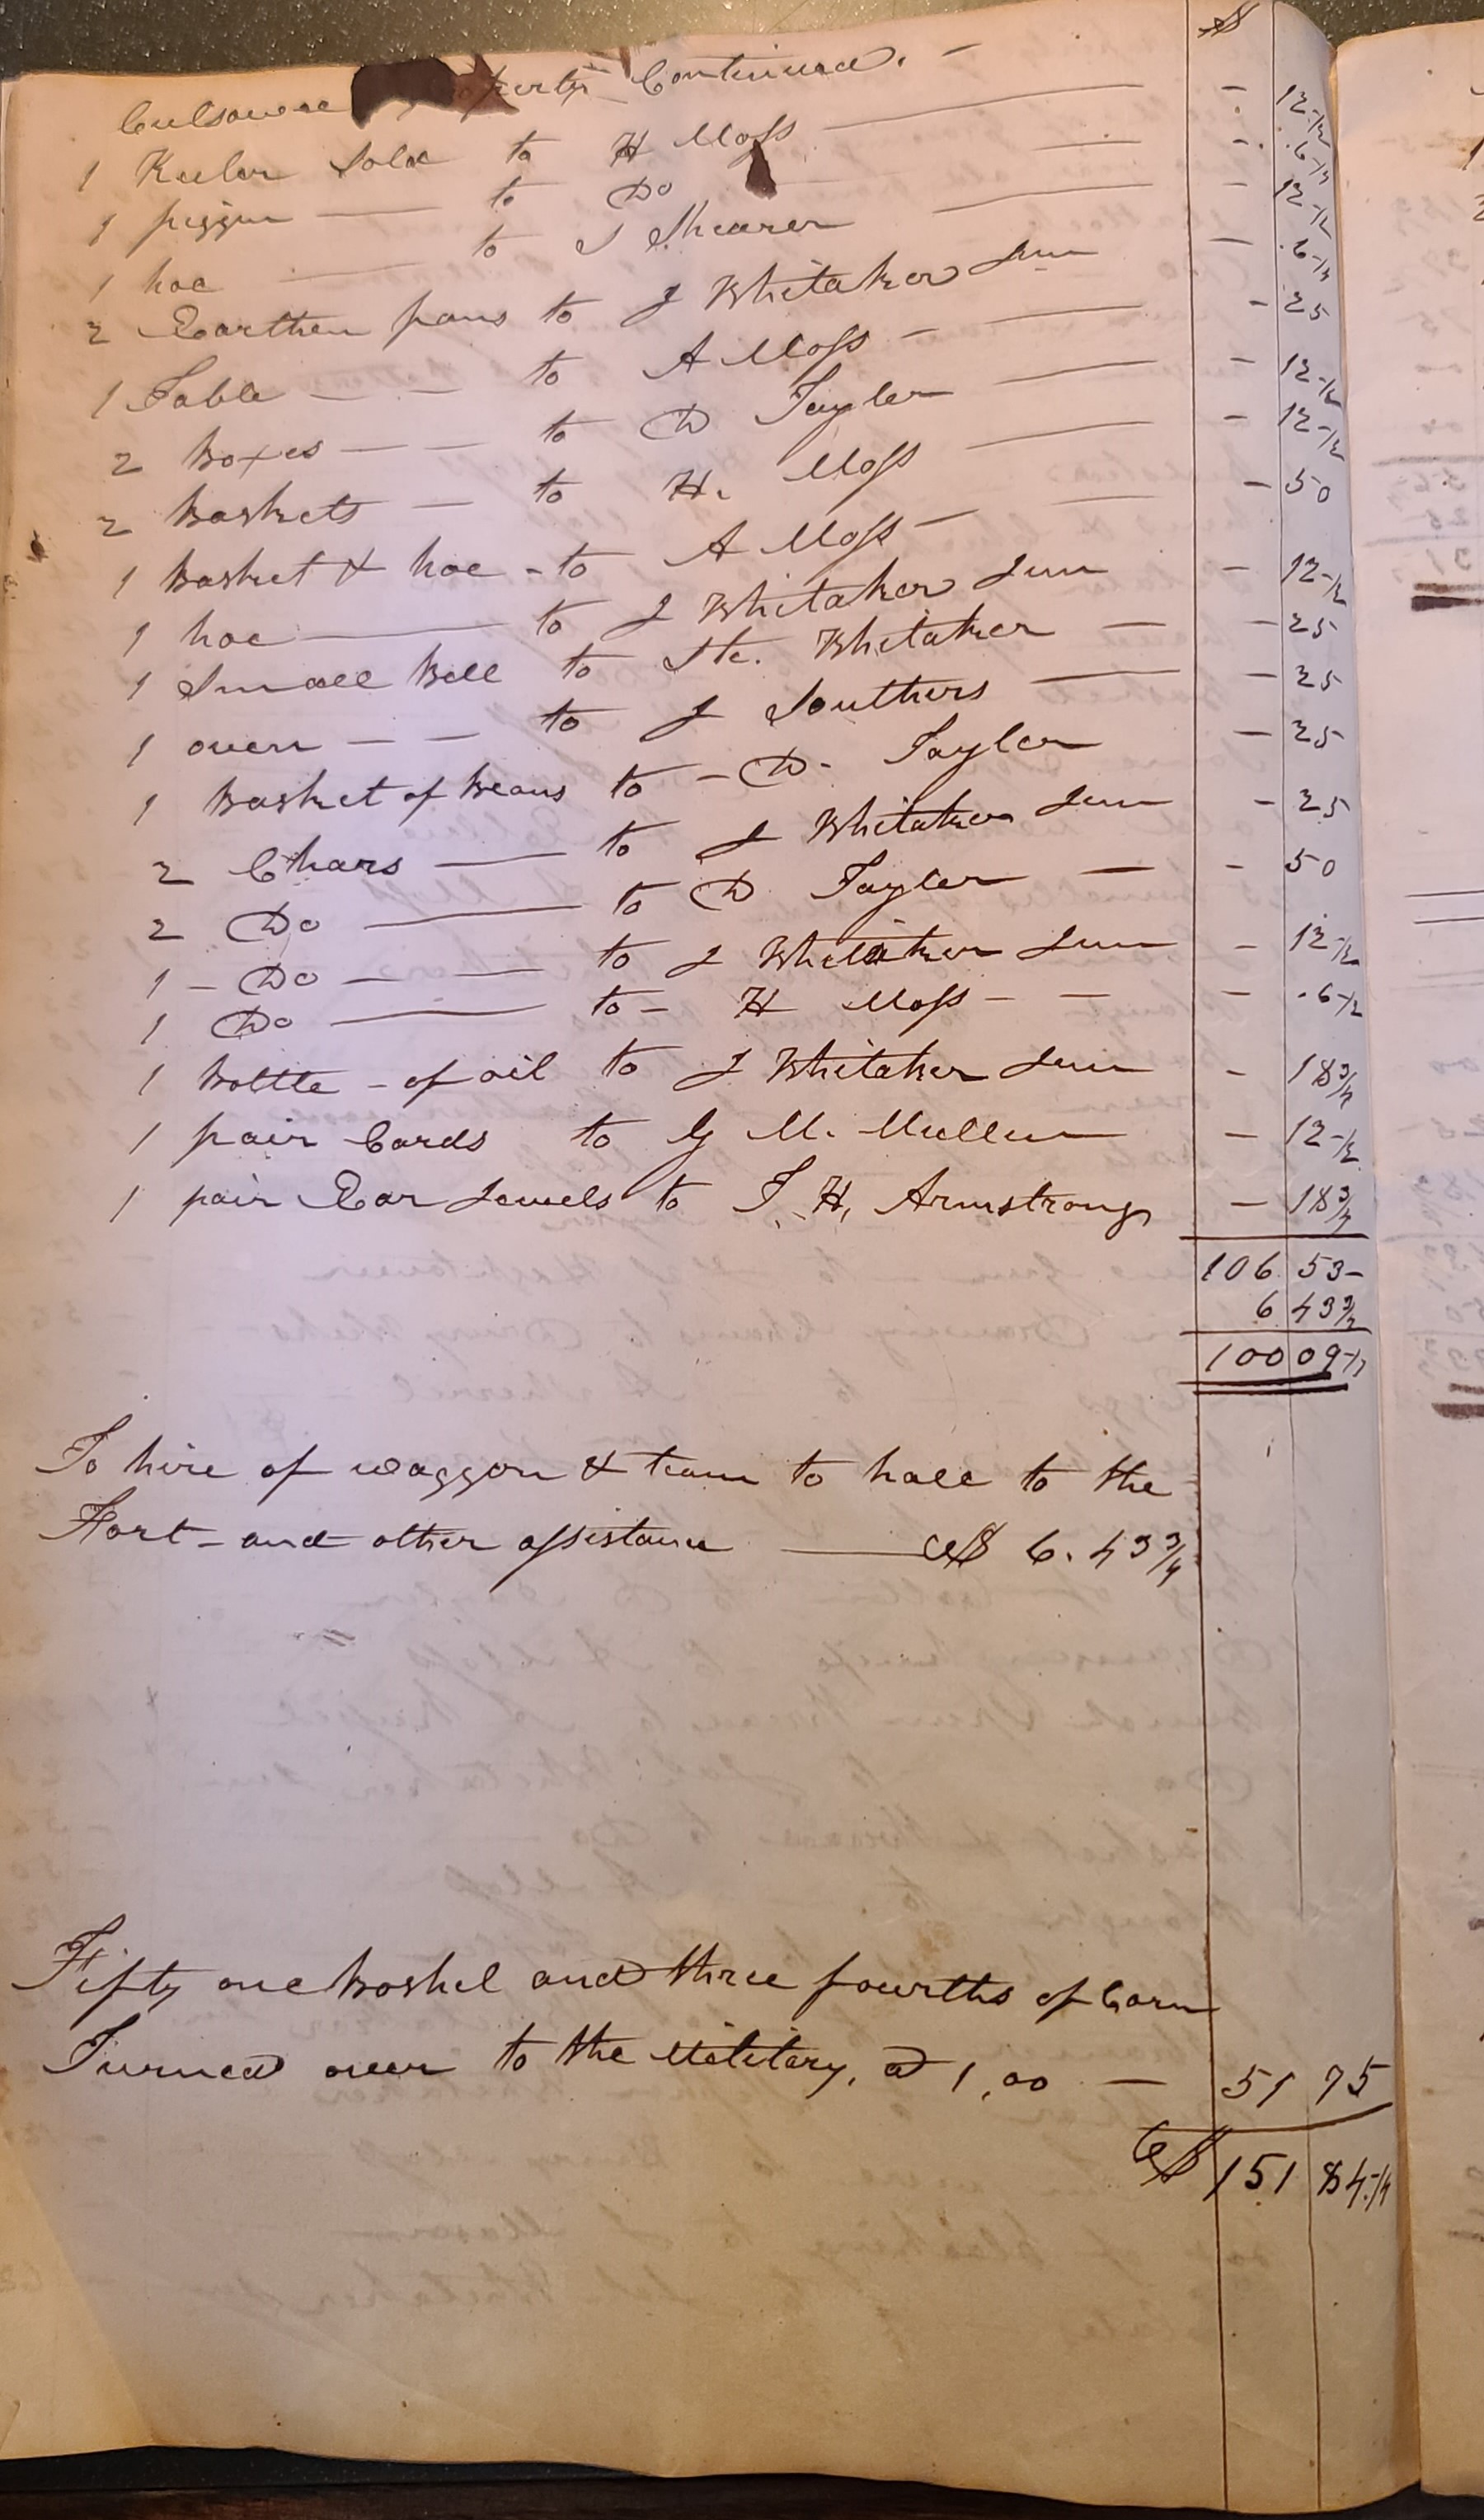 $
Culsowee property Continued. –
1 Keeler Sold to H Moss — - 12-1/2
1 piggin — to Do — - 6-1/4
1 hoe — to J Shearer — - 12-1/2
2 Earthen pans to J Whitaker Jun — 6-1/4
1 Table — — to A Moss — — - 25
2 boxes — — to D Tayler — - 12-1/2
2 baskets — to H. Moss — - 12-1/2
1 basket & hoe - to A Moss — — - 50
1 hoe — to J Whitaker Jun - 12-1/2
1 Small Bell to Ste. Whitaker — - 25
1 oven — — to J Southers — - 25
1 basket of beans to - D - Tayler — 25
2 Chars — to J Whitaker Jun - 25
2 Do — to D Tayler — - 50
1 - Do — — to J Whitaker Jun - 12-1/2
1 Do — to - H Moss - — - 6-1/2
1 bottle - of oil to J Whitaker Jun - 18 3/4
1 pair Cards to G Mc Mullen - 12-1/2
1 pair Ear Jewels to T. H, Armstrong — 18 3/4
106 53-
6 43 3/4
100 09-1/4
To hire of waggon & team to hall to the
Fort - and other assistance — $ 6.43 3/4
Fifty one boshel and three fourths of Corn
Turned over to the Military, @ 1,00 — 51 75
$ 151 84-1/4